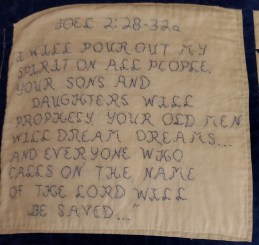 JOEL 2:28-32a
"I WILL POUR OUT MY
SPIRIT ON ALL PEOPLE.
YOUR SONS AND
DAUGHTERS WILL
PROPHESY YOUR OLD MEN
WILL DREAM DREAMS...
AND EVERYONE WHO
CALLS ON THE NAME
OF THE LORD WILL
BE SAVED..."